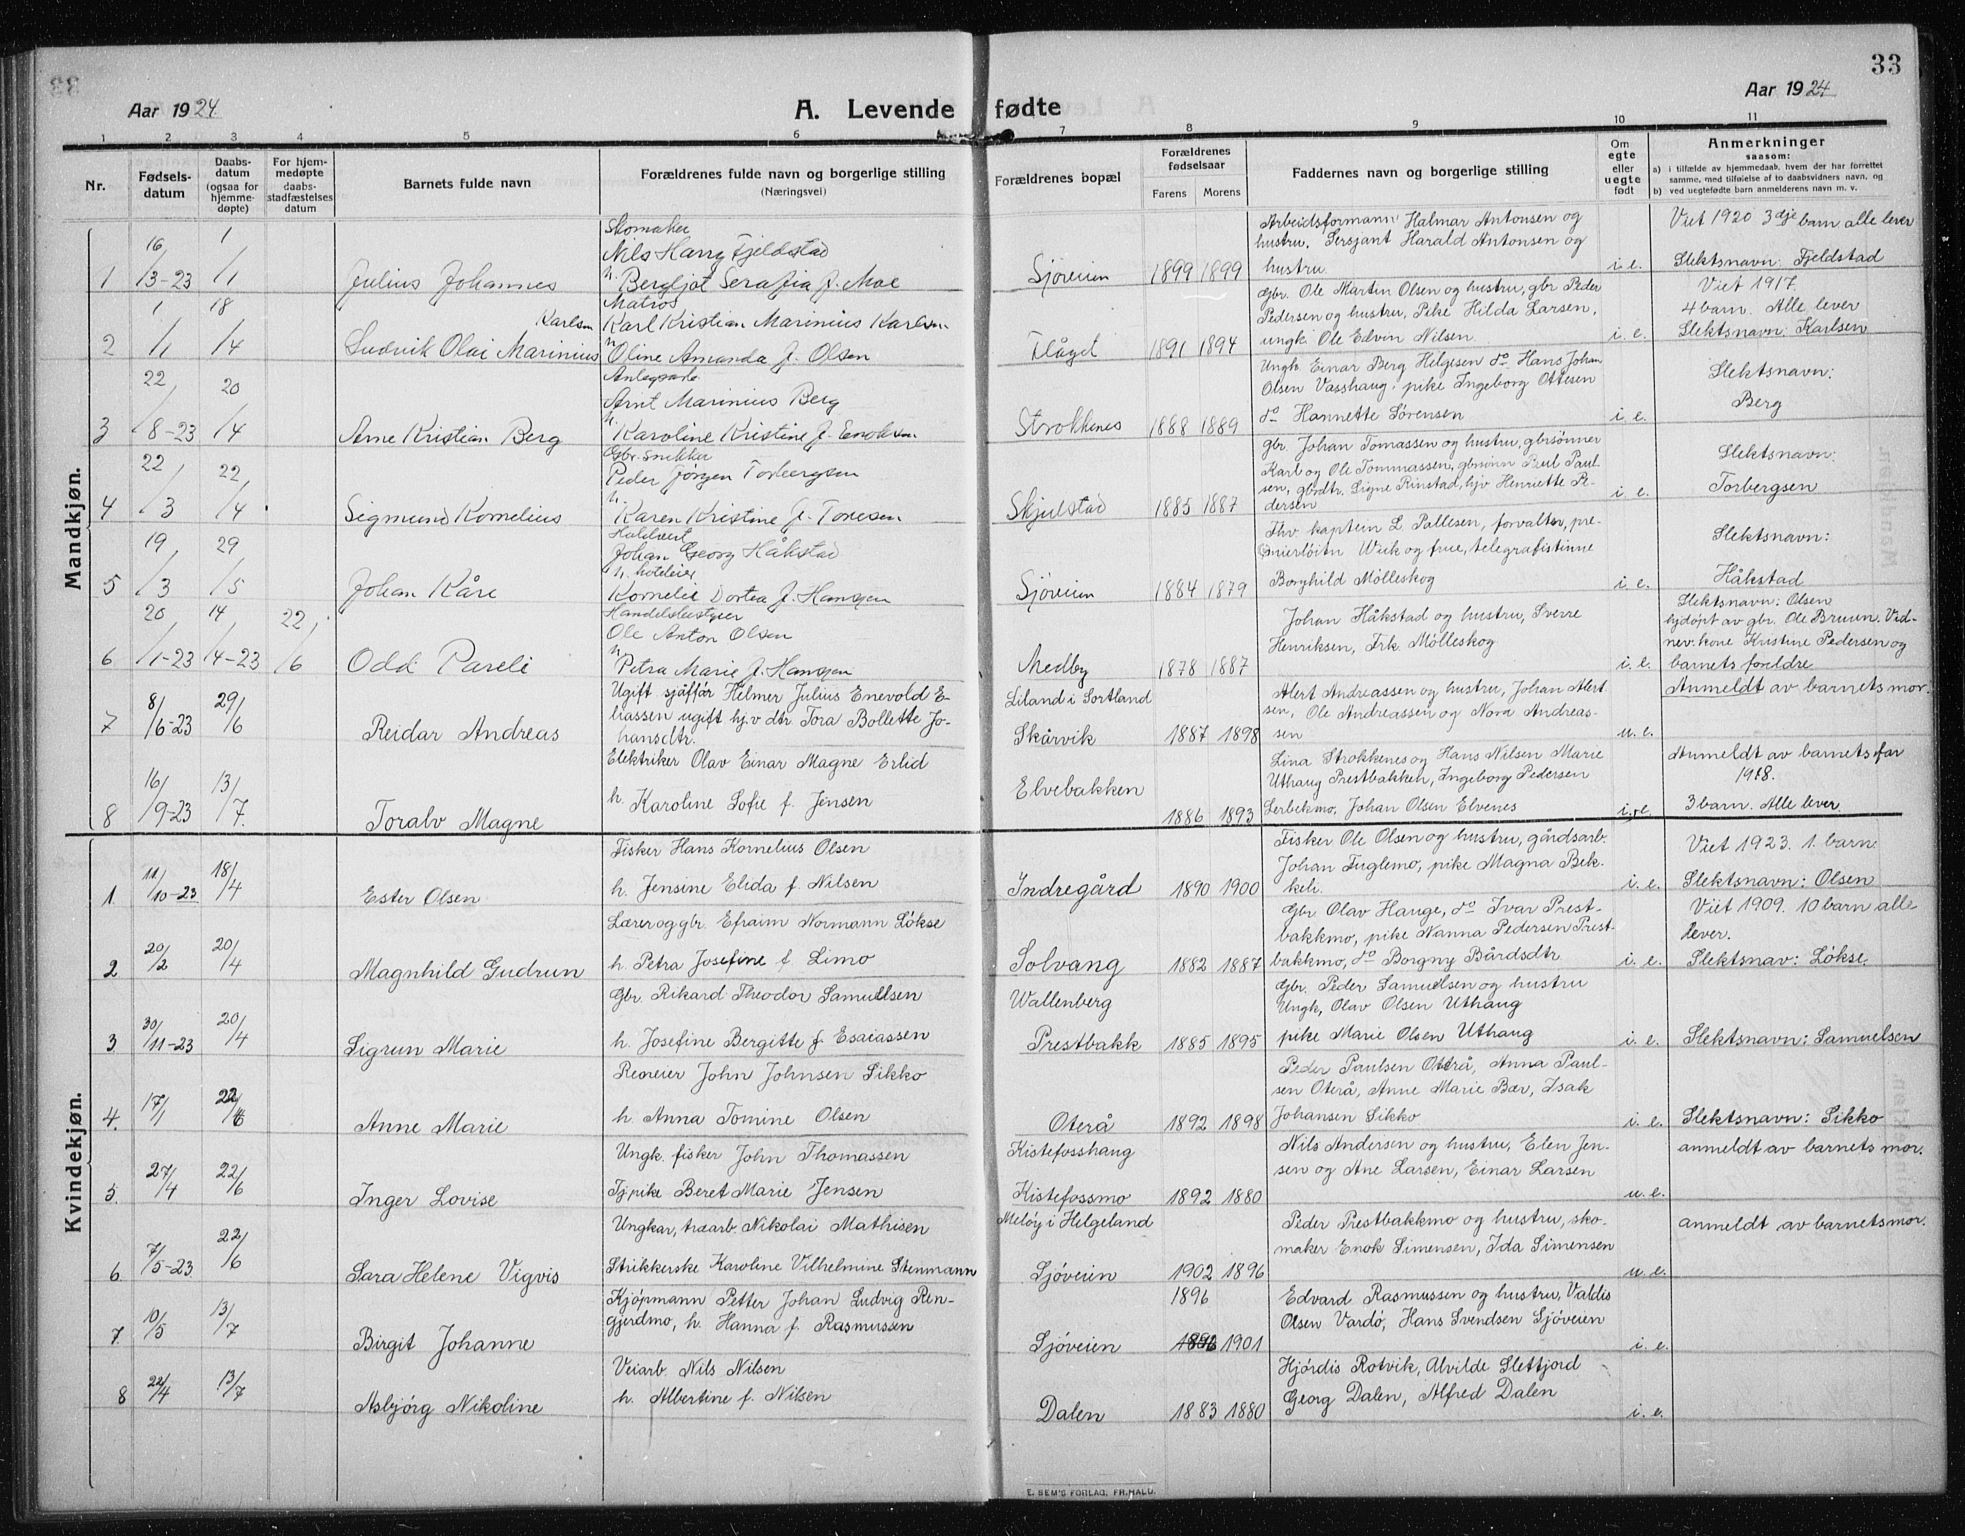 33
Aar 1924.
A. Levende fødte
Aar 1924
1 2 3 4 5 6 7 8 9 10 11
Nr.
Fødselsdatum
Daabsdatum (ogsaa for hjemmedøpte)
For hjemmedøpte daabsstadfæstelses datum
Barnets fulde navn
Forældrenes fulde navn og borgerlige stilling
(Næringsvei)
Forældrenes bopæl
Forældrenes fødselsaar
Farens Morens
Faddernes navn og borgerlige stilling
Om egte eller uegte født
Anmerkninger
saasom:
a) i tilfælde av hjemmedaab, hvem der har forrettet samme, med tilføielse af to daabsvidners navn, og
b) ved uegtefødte barn anmelderens navn m. v.
Mandkjøn.
1 16/3-23 1/1 Julius Johannes
Skomaker
Nils Harry Fjeldstad
h. Bergljot Serafia f. Moe
Sjøveien 1899 1899
Arbeidsformann Halmar Antonsen og
hustru, Sersjant Harald Antonsen og
hustru.
i. e.
Viet 1920 3dje barn alle lever
Slektsnavn: Fjeldstad
2 1/1 18/4 Ludvik Olai Marinius Karlsen
Matros
Karl Kristian Marinius Karlsen
h. Oline Amanda f. Olsen
Flåget 1891 1894
Gbr. Ole Martin Olsen og hustru, gbr Peder
Pedersen og hustru, Pike Hilda Larsen,
ungk Ole Edvin Nilsen
i. e.
Viet 1917.
4 barn. Alle lever
Slektsnavn: Karlsen
3 22/8-23 20/4 Arne Kristian Berg
Arnt Marinius Berg
h. Karoline Kristine f. Enoksen
Strokkenes 1888 1889
Ungk. Einar Berg Helgesen do Hans Johan
Olsen Vasshaug, pike Ingeborg Ottesen
do Hannette Sørensen
i. e.
Slektsnavn:
Berg
4 22/3 22/4 Sigmund Kornelius
Gbr. snikker
Peder Jørgen Torbergsen
h. Karen Kristine f. Toresen
Skjulstad 1885 1887
gbr. Johan Tomassen og hustru, gbrsønner
Karl og Ole Tommassen, gbrsønn Paul Paul-
sen, gbrdtr. Signe Rinstad, hjv Henriette Pe-
dersen
i. e.
Slektsnavn:
Torbergsen
5 19/3 29/5 Johan Kåre
Johan Georg Håkstad
h. hoteleier
Kornelie Dortea f. Hansen
Sjøveien 1884 1879
Thv. kaptein L. Pallesen, forvalter, pre-
mierløitn Wiik og frue, telegrafistinne
Borghild Mölleskog
i. e.
Slektsnavn:
Håkstad
6 20/1-23 14/4-23 22/6 Odd Pareli
Handelsbestyrer
Ole Anton Olsen
h. Petra Marie f. Hansen
Medby 1878 1887
Johan Håkstad og hustru, Sverre
Henriksen, Frk Mölleskog
i. e.
Slektsnavn: Olsen
hjdøpt av gbr. Ole Bruun. Vid-
nev. kone Kristine Pedersen og
barnets foreldre
7 8/6-23 29/6 Reidar Andreas
Ugift sjåffør Helmer Julius Enevold E-
liassen ugift hj.v dtr Tora Bollette Jo-
hansdtr.
Liland i Sortland
Skårvik 1887 1898
Alert Andreassen og hustru, Johan Alert
sen, Ole Andreassen og Nora Andreas-
sen
u. e.
Anmeldt av barnets mor.
8 16/9-23 13/7. Toralv Magne
Elektriker Olav Einar Magne Erlid
h. Karoline Sofie f. Jensen
Elvebakken 1886 1893
Lina Strokkenes og Hans Nilsen Marie
Uthaug Prestbakken, Ingeborg Pedersen
Lerbekmo, Johan Olsen Elvenes
i. e.
Anmeldt av barnets far
1918.
3 barn. Alle lever
Kvindekjøn.
1 11/10-23 18/4 Ester Olsen
Fisker Hans Kornelius Olsen
h. Jensine Elida f. Nilsen
Indregård 1890 1900
Fisker Ole Olsen og hustru, gårdsarb.
Johan Fuglemo, pike Magna Bek-
keli.
i. e.
Viet 1923. 1. barn
Slektsnavn: Olsen
2 20/2 20/4 Magnhild Gudrun
Lærer og gbr. Efraim Normann Løkse
h. Petra Josefine f. Limo
Solvang 1882 1887
Gbr Olav Hauge, do Ivar Prest-
bakkmo, pike Nanna Pedersen Prest-
bakkmo, do Borgny Bårdsdtr
i. e.
Viet 1909. 10 barn alle
lever.
Slektsnav: Løkse.
3 30/11-23 20/4 Sigrun Marie
Gbr. Rikard Theodor Samuelsen
h. Josefine Bergitte f Esaiassen
Wallenberg
Prestbakk 1885 1895
Gbr. Peder Samuelsen og hustru
Ungk, Olav Olsen Uthaug
pike Marie Olsen Uthaug
i. e.
Slektsnavn: Samuelsen
4. 17/1 22/6 Anne Marie
Reneier John Johnsen Sikko
h. Anna Tomine Olsen
Oterå 1892 1898
Peder Paulsen Oterå, Anna Paul-
sen Oterå, Anne Marie Bær, Isak
Johansen Sikko
i. e.
Slektsnavn: Sikko
5. 27/4 22/6 Inger Lovise
Ungk. fisker John Thomassen
Tj.pike Beret Marie Jensen
Kistefosshaug
Kistefossmo 1892 1880
Nils Andersen og hustru, Elen Jen-
sen og Ane Larsen, Einar Larsen
u. e.
anmeldt av barnets mor.
6. 7/5-23 22/6 Sara Helene Vigvis
Ungkar, træarb. Nikolai Mathisen
Strikkerske Karoline Vilhelmine Stenmann
Meløy i Helgeland
Sjøveien 1902 1896
Peder Prestbakkmo og hustru, sko-
maker Enok Simensen, Ida Simensen
u. e.
anmeldt av barnets mor.
7. 10/5 13/7 Birgit Johanne
Kjøpmann Petter Johan Ludvig Ren-
gjerdmo, h. Hanna f. Rasmussen
Sjøveien 1896 1901
Edvard Rasmussen og hustru, Valdis
Olsen Vardø, Hans Svendsen Sjøveien
i. e.
8 22/4 13/7 Asbjørg Nikoline
Veiarb. Nils Nilsen
h. Albertine f. Nilsen
Dalen 1883 1880
Hjørdis Rotvik, Alvilde Slettjord
Georg Dalen, Alfred Dalen
i. e.
E. SEM'S FORLAG, FR.HALD.